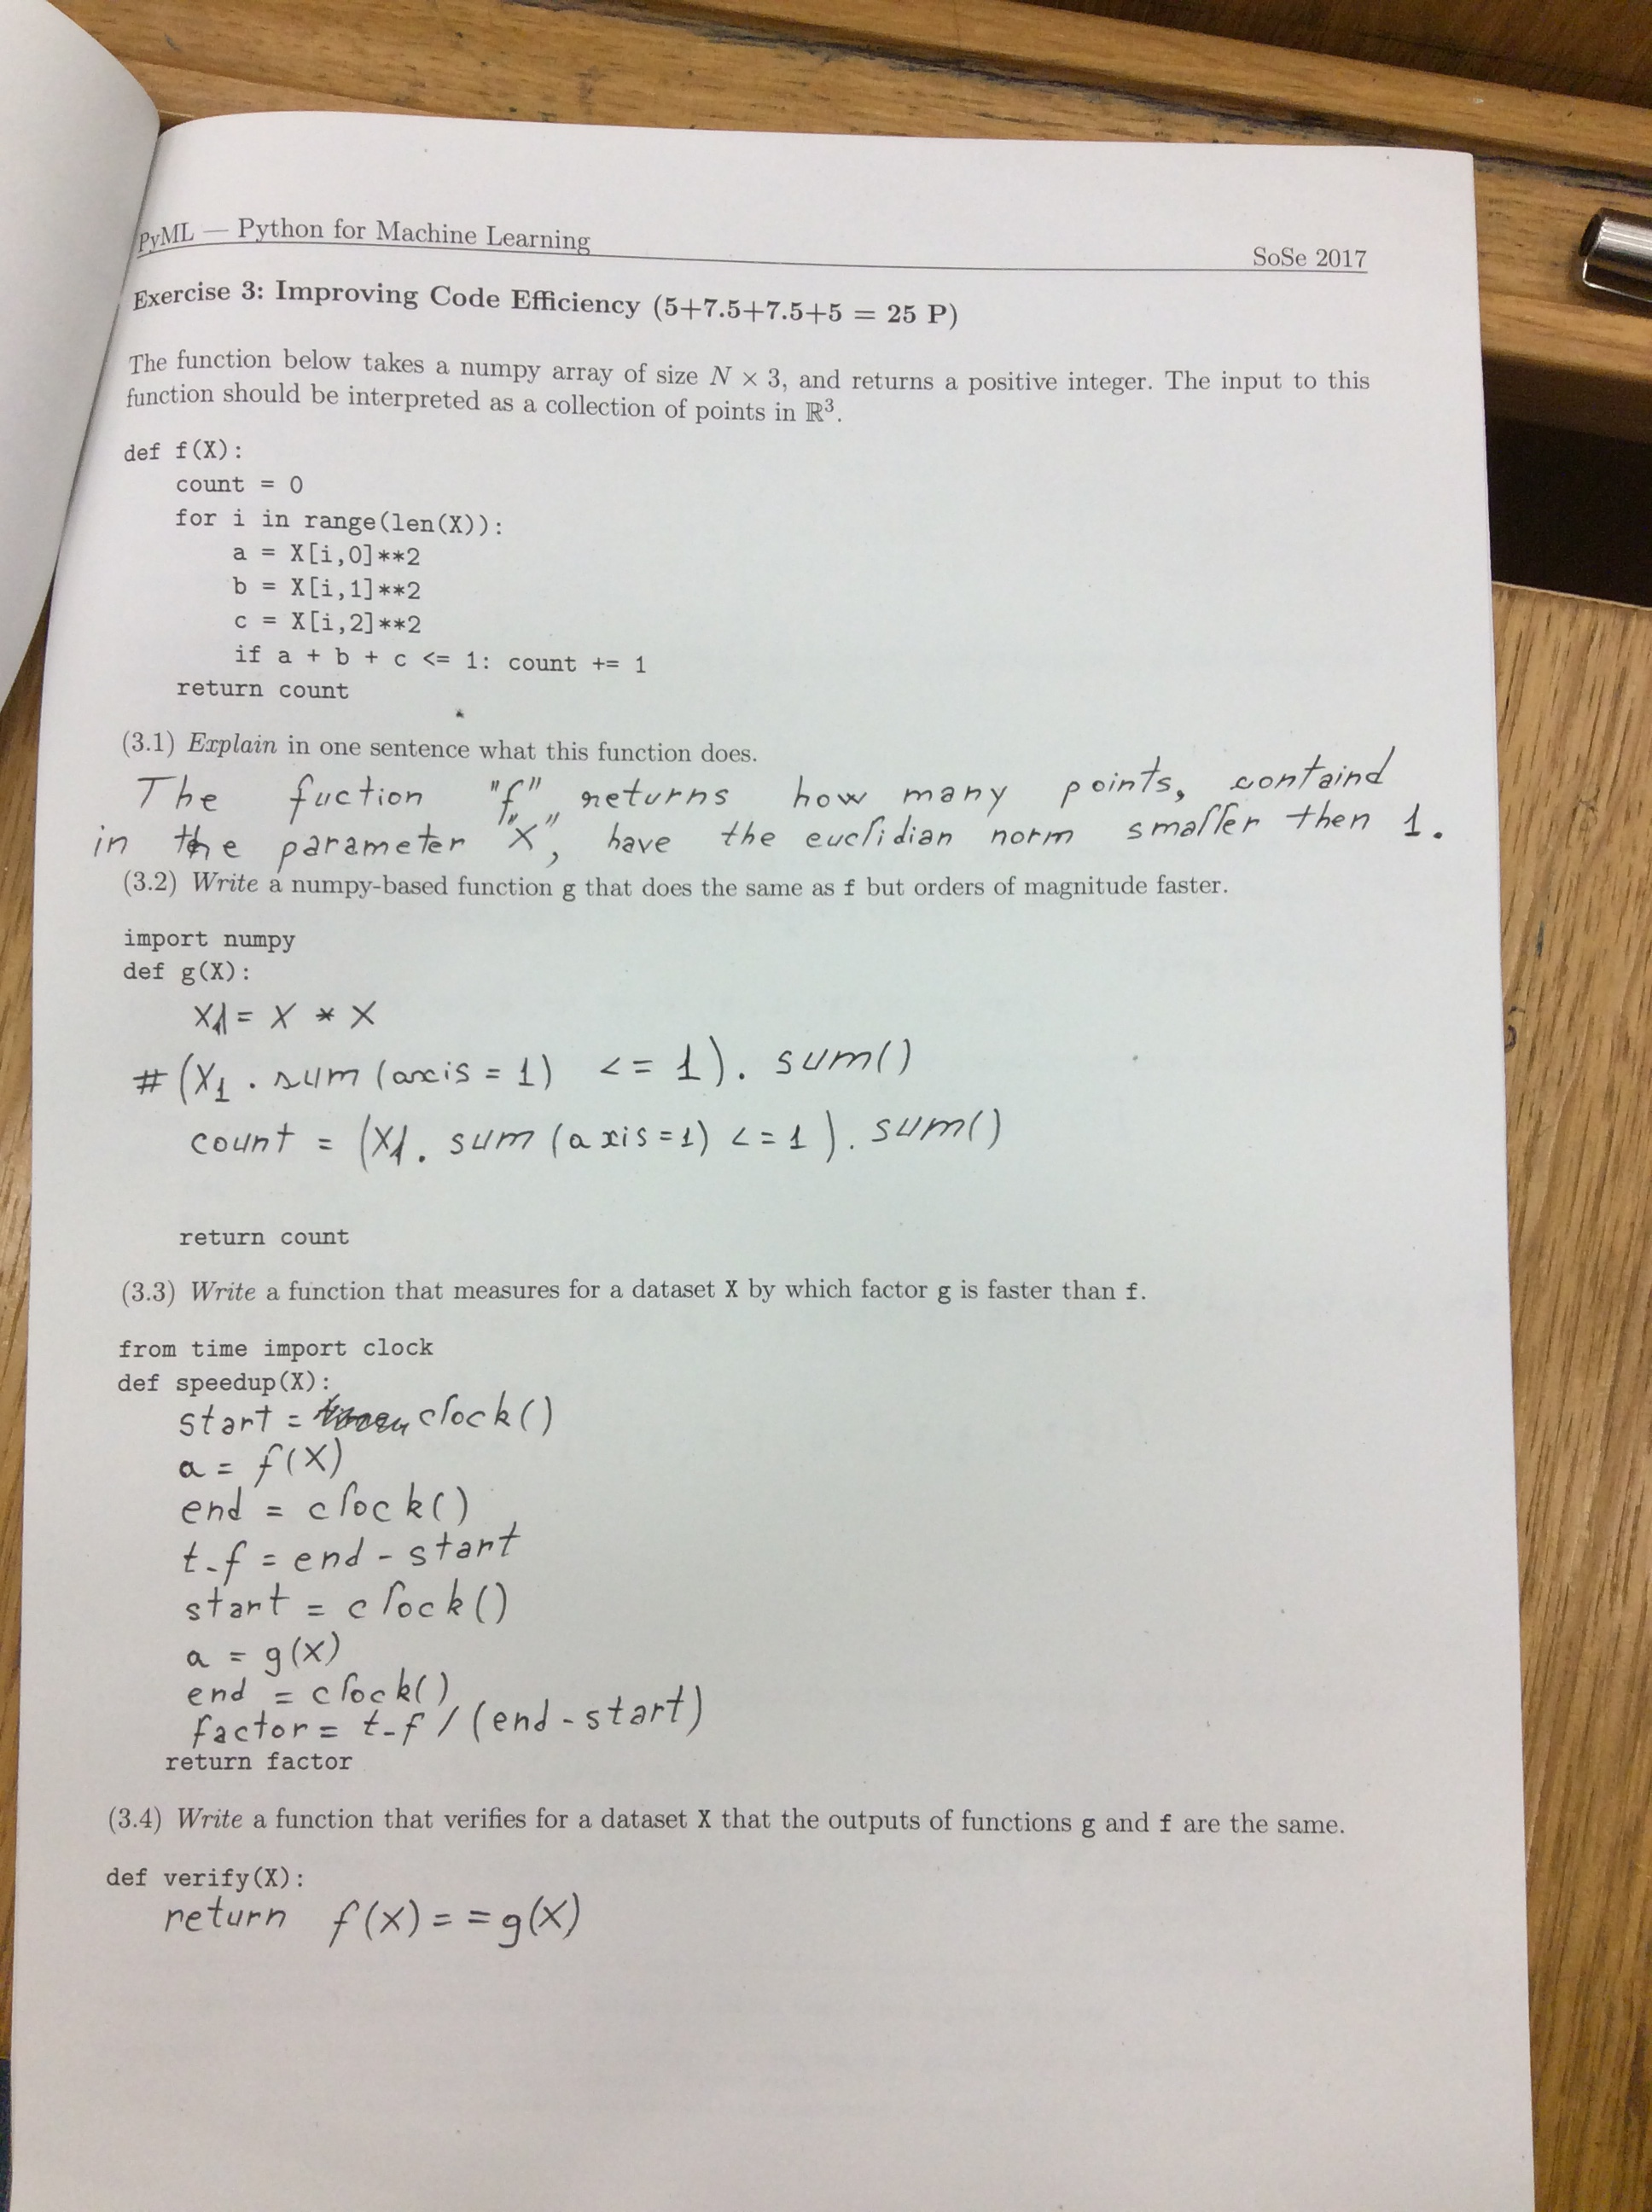 PyML — Python for Machine Learning
SoSe 2017
Exercise 3: Improving Code Efficiency (5+7.5+7.5+5 = 25 P)
The function below takes a numpy array of size N × 3, and returns a positive integer. The input to this
function should be interpreted as a collection of points in ℝ³.
def f(X):
    count = 0
    for i in range(len(X)):
        a = X[i,0]**2
        b = X[i,1]**2
        c = X[i,2]**2
        if a + b + c <= 1: count += 1
    return count
(3.1) Explain in one sentence what this function does.
The fuction "f" returns how many points, containd
in the parameter "X", have the euclidian norm smaller then 1.
(3.2) Write a numpy-based function g that does the same as f but orders of magnitude faster.
import numpy
def g(X):
    X1 = X * X
# (X1 . sum (axis = 1) <= 1). sum()
    count = (X1. sum (axis=1) <=1). sum()
    return count
(3.3) Write a function that measures for a dataset X by which factor g is faster than f.
from time import clock
def speedup(X):
    start = clock()
    a = f(X)
    end = clock()
    t_f = end - start
    start = clock()
    a = g(X)
    end = clock()
    factor = t_f / (end - start)
    return factor
(3.4) Write a function that verifies for a dataset X that the outputs of functions g and f are the same.
def verify(X):
    return f(X) == g(X)